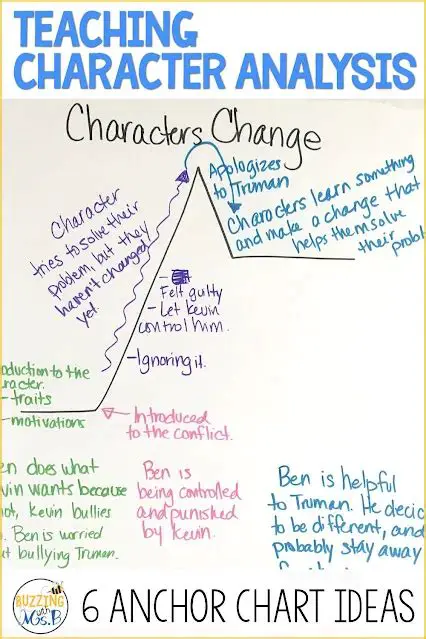 TEACHING
CHARACTER ANALYSIS
Characters Change
Apologizes
to Truman
Characters learn something
and make a change that
helps them solve
their probl
Character
tries to solve their
problem, but they
haven't changed
yet.
Felt guilty
- Let Kevin
control him.
- Ignoring it.
oduction to the
racter.
- traits
- motivations
Introduced
to the conflict.
en does what
vin wants because
not, Kevin bullies
. Ben is worried
t bullying Truman.
Ben is
being controlled
and punished
by Kevin.
Ben is helpful
to Truman. He decid
to be different, and
probably stay away
BUZZING
with
Ms. B
6 ANCHOR CHART IDEAS